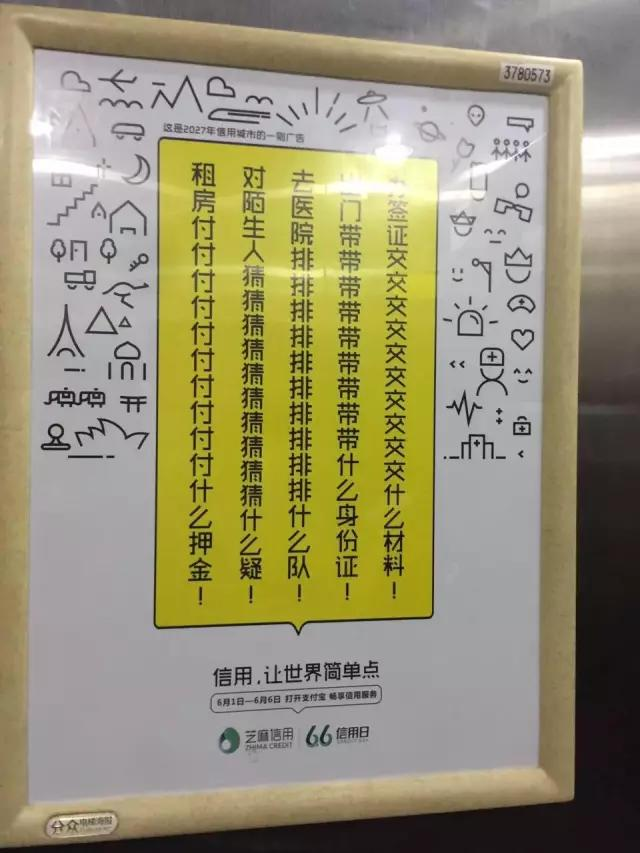 3780573
这是2027年信用城市的一则广告
办签证交交交交交交交交交交什么材料！
出门带带带带带带带带带什么身份证！
去医院排排排排排排排排排排什么队！
对陌生人猜猜猜猜猜猜猜猜猜猜什么疑！
租房付付付付付付付付付付什么押金！
信用，让世界简单点
6月1日—6月6日 打开支付宝 畅享信用服务
芝麻信用 ZHIMA CREDIT 6.6 信用日 CREDIT DAY
分众 电梯海报